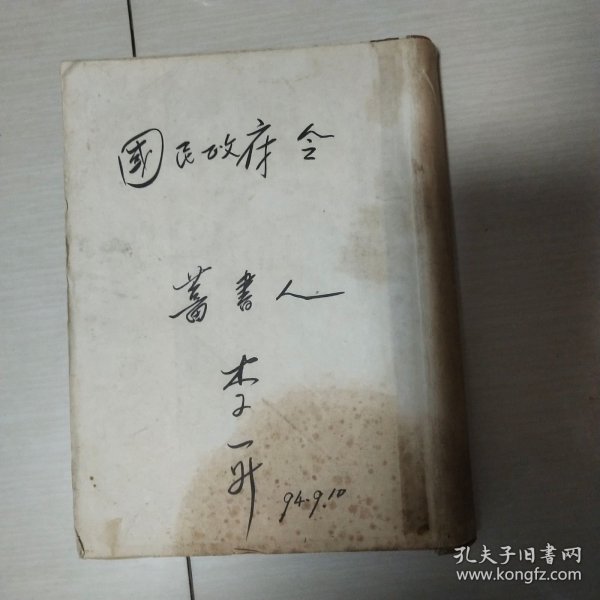 國民政府令
蓄書人
李一
94.9.10
孔夫子旧書网
www.kongfz.com